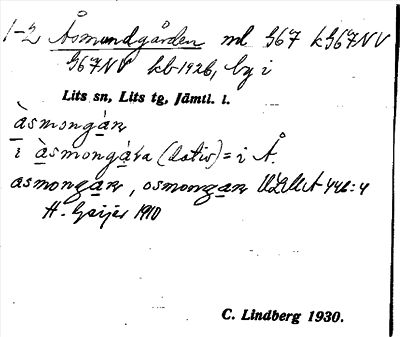 1-2 Åsmundgården nd G67 kG67NV
G67NV kb 1926, by i
Lits sn, Lits tg, Jämtl. l.
àsmongàn
i àsmongàʀa (dativ) = i Å.
asmongan, osmongan ULMA 446:4
H. Geijer 1910
C. Lindberg 1930.